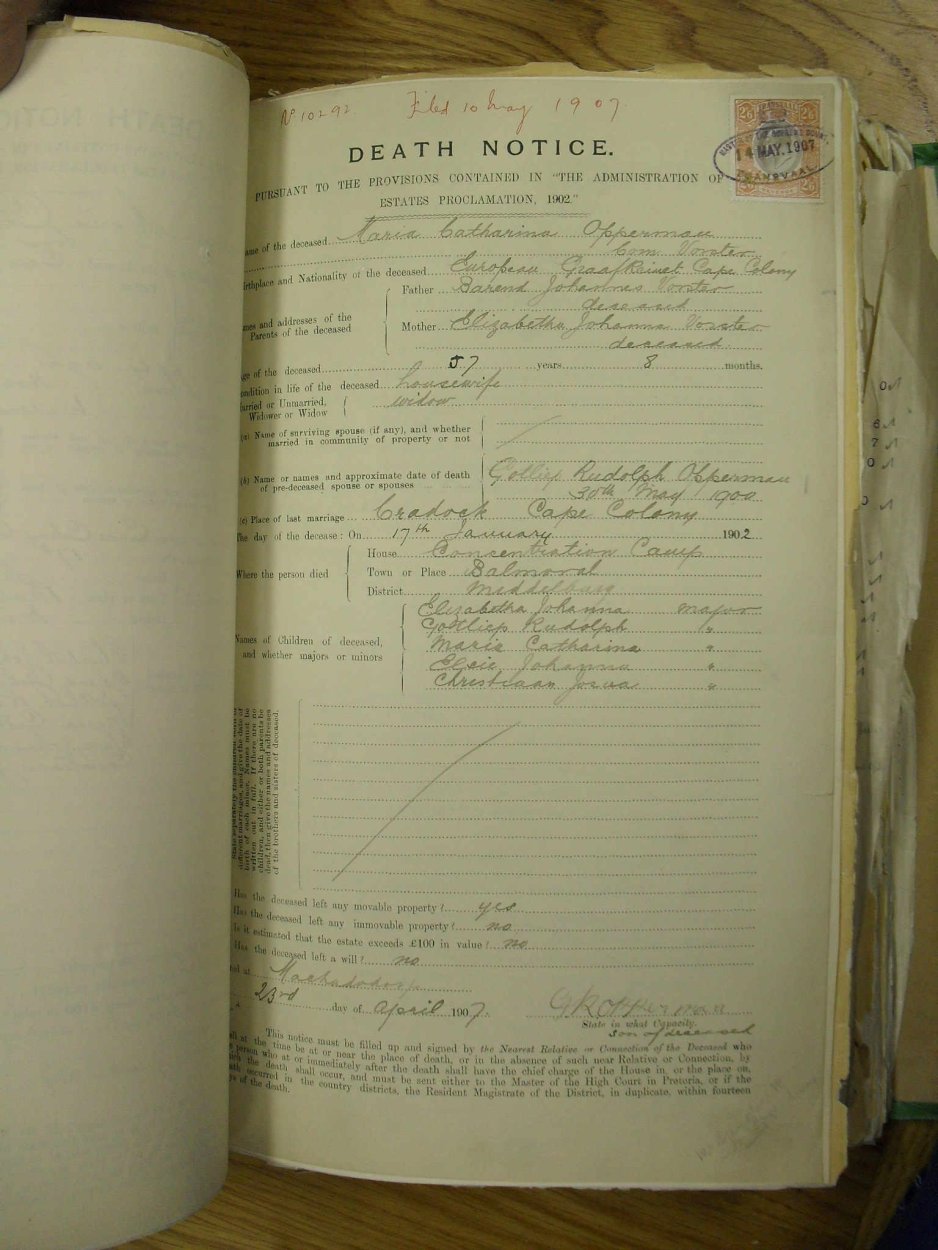 No 10292 Filed 10 May 1907.
2/6 TRANSVAAL 2/6
14 MAY. 1907
TRANSVAAL
DEATH NOTICE.
PURSUANT TO THE PROVISIONS CONTAINED IN "THE ADMINISTRATION OF
ESTATES PROCLAMATION, 1902."
ame of the deceased Maria Catharina Opperman
born Vorster
irthplace and Nationality of the deceased European Graaf Reinet Cape Colony
Father Barend Johannes Vorster
deceased
mes and addresses of the
Parents of the deceased
Mother Elizabetha Johanna Vorster
deceased
ge of the deceased 57 years 8 months.
ondition in life of the deceased housewife
arried or Unmarried, widow
Widower or Widow
(a) Name of surviving spouse (if any), and whether
married in community of property or not
(b) Name or names and approximate date of death Gotliep Rudolph Opperman
of pre-deceased spouse or spouses 30th May 1900
(c) Place of last marriage Cradock Cape Colony
The day of the decease: On 17th January 1902
House Concentration Camp
Where the person died Town or Place Balmoral
District Middelburg
Elizabetha Johanna major
Gottliep Rudolph "
Names of Children of deceased, Maria Catharina "
and whether majors or minors Elsie Johanna "
Christiaan Josua "
different marriages, and give the date of
birth of each minor. Names must be
written out in full. If there are no
children, and either or both parents be
dead, then give the names and addresses
of the brothers and sisters of deceased.
Has the deceased left any movable property? yes
Has the deceased left any immovable property? no
Is it estimated that the estate exceeds £100 in value? no
Has the deceased left a will? no
at Machadodorp
23rd day of April 1907. G R Opperman
State in what Capacity.
Son of deceased
This notice must be filled up and signed by the Nearest Relative or Connection of the Deceased who
at the time be at or near the place of death, or in the absence of such near Relative or Connection, by
person who at or immediately after the death shall have the chief charge of the House in, or the place on,
the death shall occur, and must be sent either to the Master of the High Court in Pretoria, or if the
occurred in the country districts, the Resident Magistrate of the District, in duplicate, within fourteen
of the death.